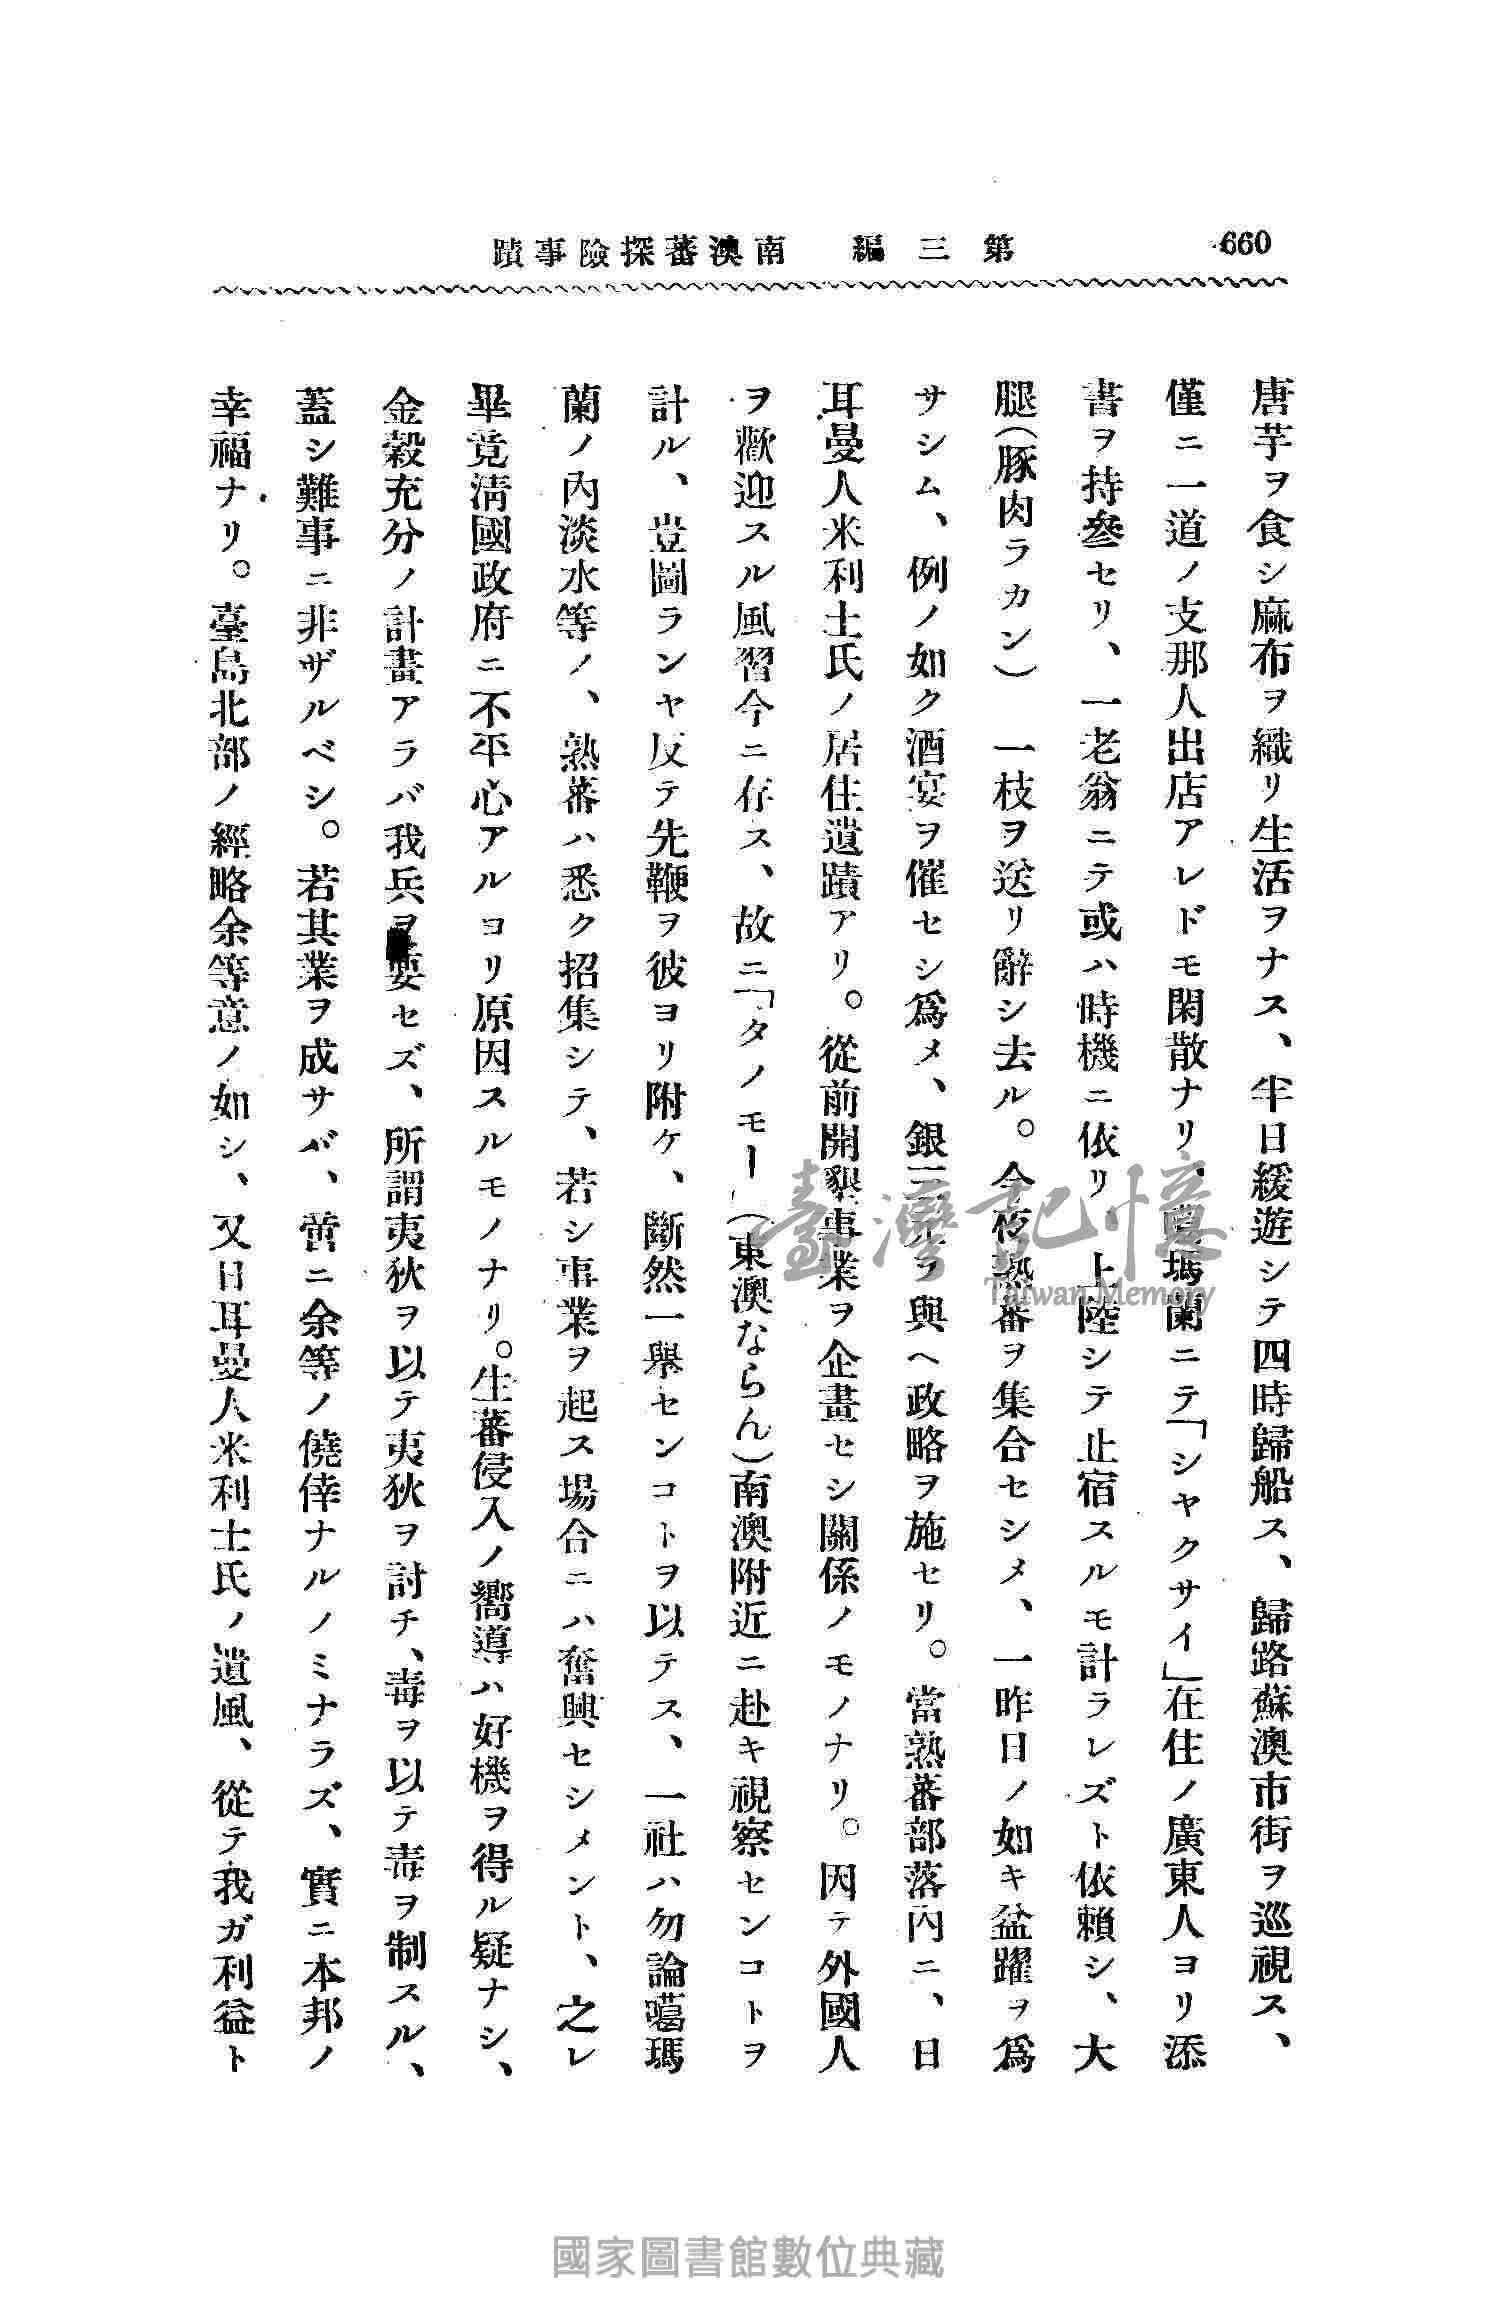 660
第三編　南澳蕃探險事蹟
唐芋ヲ食シ麻布ヲ織リ生活ヲナス、半日緩遊シテ四時歸船ス、歸路蘇澳市街ヲ巡視ス、
僅ニ一道ノ支那人出店アレドモ閑散ナリ、瑪蘭ニテ「シヤクサイ」在住ノ廣東人ヨリ添
書ヲ持參セリ、一老翁ニテ或ハ時機ニ依リ、上陸シテ止宿スルモ計ラレズト依賴シ、大
腿(豚肉ラカン)　一枝ヲ送リ辭シ去ル。今夜熟蕃ヲ集合セシメ、一昨日ノ如キ盆躍ヲ爲
サシム、例ノ如ク酒宴ヲ催セシ爲メ、銀三元ヲ與ヘ政略ヲ施セリ。當熟蕃部落內ニ、日
耳曼人米利士氏ノ居住遺蹟アリ。從前開墾事業ヲ企畫セシ關係ノモノナリ。因テ外國人
ヲ歡迎スル風習今ニ存ス、故ニ「タノモー」(東澳ならん)南澳附近ニ赴キ視察センコトヲ
計ル、豈圖ランヤ反テ先鞭ヲ彼ヨリ附ケ、斷然一擧センコトヲ以テス、一社ハ勿論噶瑪
蘭ノ內淡水等ノ、熟蕃ハ悉ク招集シテ、若シ事業ヲ起ス場合ニハ奮興セシメント、之レ
畢竟淸國政府ニ不平心アルヨリ原因スルモノナリ。生蕃侵入ノ嚮導ハ好機ヲ得ル疑ナシ、
金穀充分ノ計畫アラバ我兵ヲ要セズ、所謂夷狄ヲ以テ夷狄ヲ討チ、毒ヲ以テ毒ヲ制スル、
蓋シ難事ニ非ザルベシ。若其業ヲ成サバ、啻ニ余等ノ僥倖ナルノミナラズ、實ニ本邦ノ
幸福ナリ。臺島北部ノ經略余等意ノ如シ、又日耳曼人米利士氏ノ遺風、從テ我ガ利益ト
臺灣記憶
Taiwan Memory
國家圖書館數位典藏